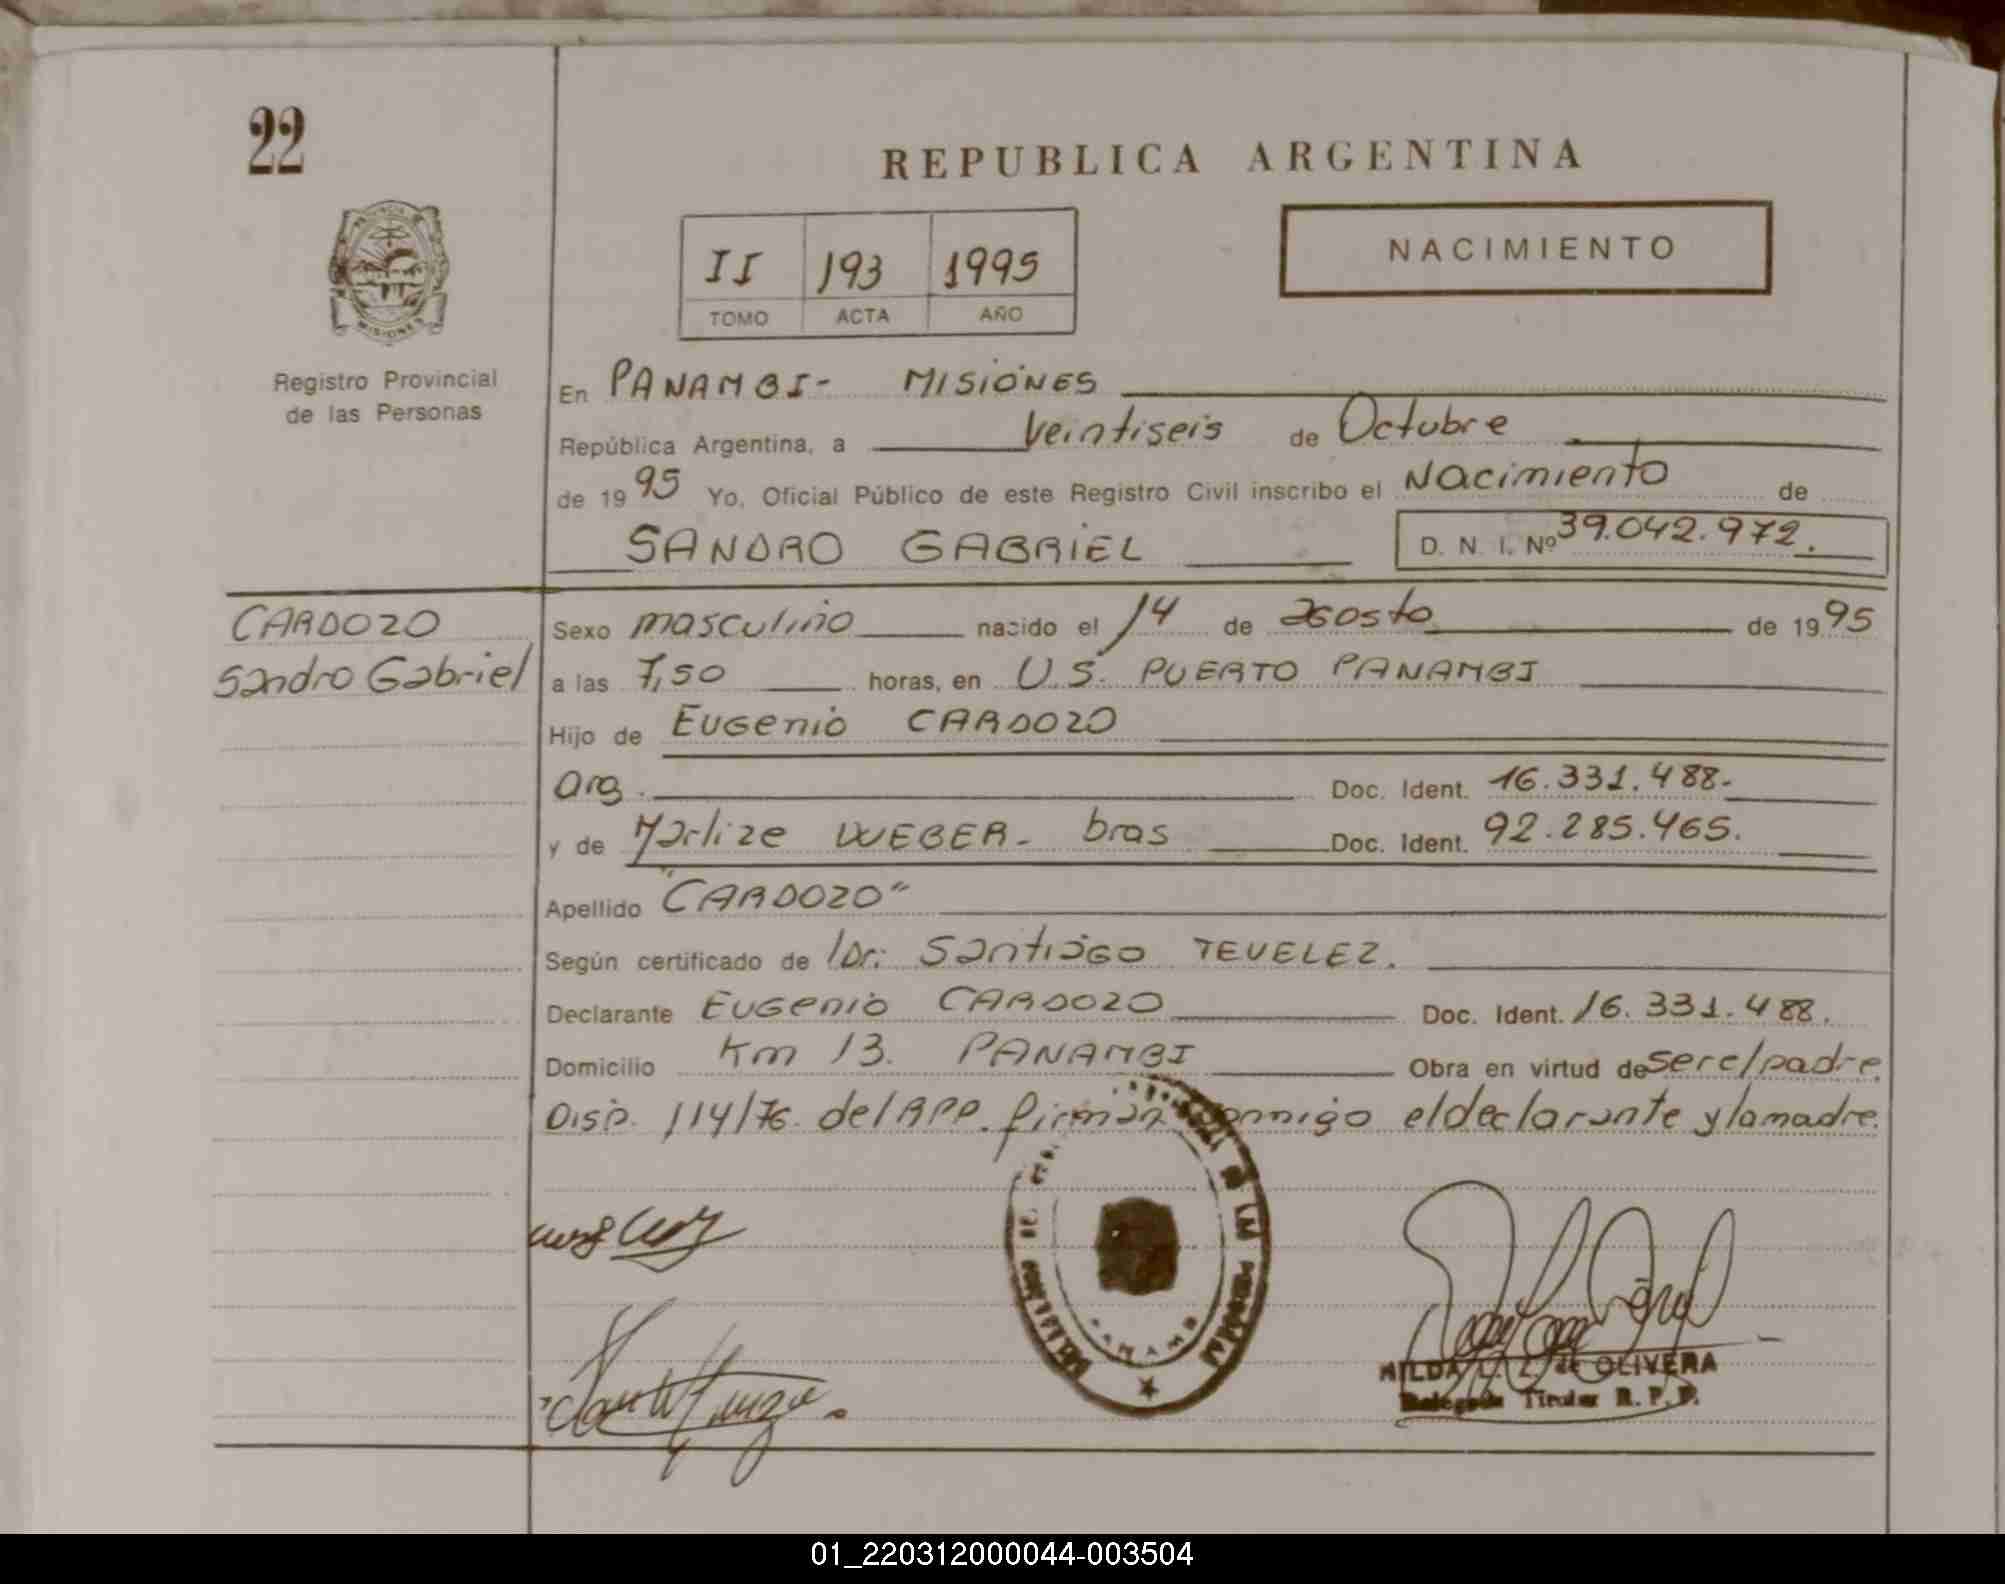 22
REPUBLICA ARGENTINA
NACIMIENTO
II 193 1995
TOMO ACTA AÑO
PROVINCIA DE
MISIONES
Registro Provincial
de las Personas
En PANAMBI- MISIONES
República Argentina, a Veintiseis de Octubre
de 1995 Yo, Oficial Público de este Registro Civil inscribo el Nacimiento de
SANDRO GABRIEL D. N. I. Nº 39.042.972.
CARDOZO
Sandro Gabriel
Sexo masculino nacido el 14 de agosto de 1995
a las 7,50 horas, en U.S. PUERTO PANAMBI
Hijo de Eugenio CARDOZO
Arg. Doc. Ident. 16.331.488-
y de Marlize WEBER- bras Doc. Ident. 92.285.465.
Apellido "CARDOZO"
Según certificado de Dr: Santiago TEVELEZ.
Declarante Eugenio CARDOZO Doc. Ident. 16.331.488.
Domicilio Km 13. PANAMBI Obra en virtud de ser el padre
Disp. 114/76. del RPP. firman conmigo el declarante y la madre.
HILDA L. Z. de OLIVERA
Delegada Titular R. P. P.
01_220312000044-003504